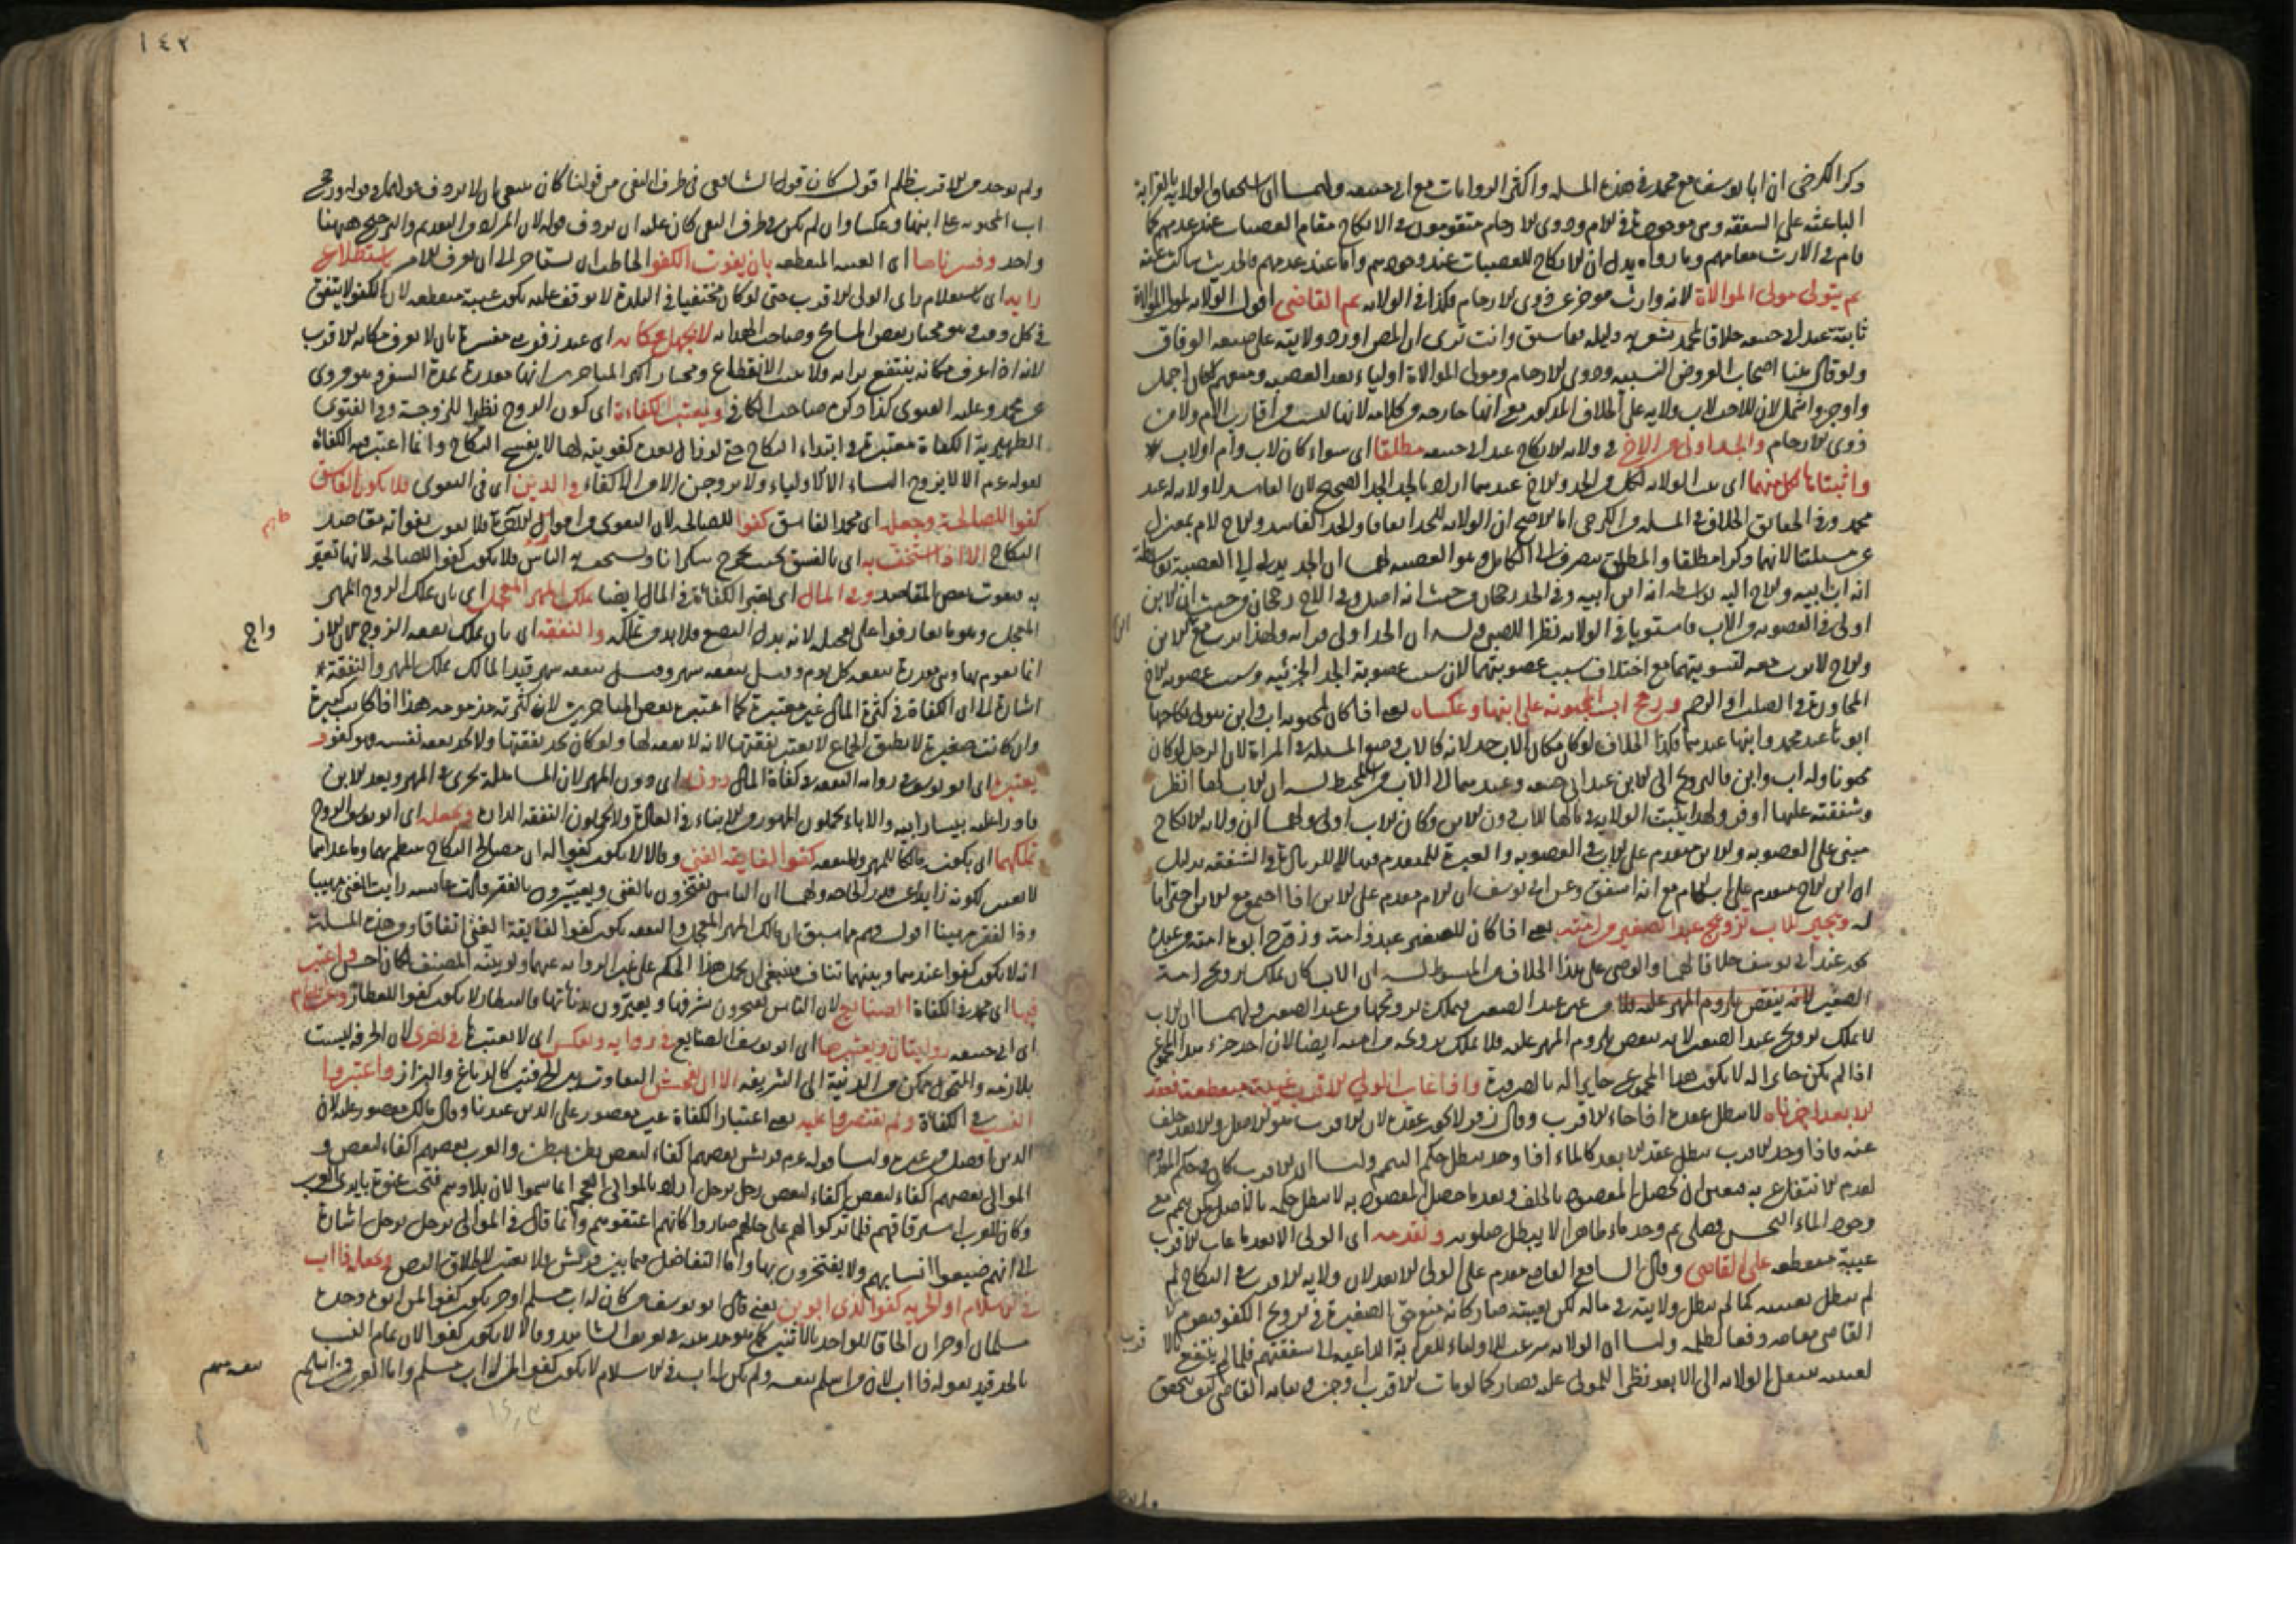 ذكر الكرخي ان ابا يوسف مع محمد في هذه المسئلة واكثر الروايات مع ابي حنيفة ولهما ان استحقاق الولاية بالقرابة
الباعثة على الشفقة وهي موجودة في الام وذوي الارحام متقومون في الانكاح مقام العصبات عند عدمهم كما
قام في الارث مقامهم وما رواه يدل ان الانكاح للعصبات عند وجودهم واما عند عدمهم فالحديث ساكت عنه
ثم يتولى مولى الموالاة لانه وارث موخر عن ذوي الارحام فكذا في الولاية ثم القاضي اقول الولاية لمولى الموالاة
ثابتة عند ابي حنيفة خلافا لمحمد ودليله ما سبق وانت ترى ان المص اورد ولايته على صيغة الوفاق
ولو قال هنا اصحاب الفروض النسبية وذوي الارحام ومولى الموالاة اولياء بعد العصبة لكان اجمل
واوجز واشمل لان للاخت لاب ولاية على الخلاف المذكور مع انها خارجة من كلامه لانها ليست من اقارب الام ولا من
ذوي الارحام والجد اولى من الاخ في ولاية الانكاح عند ابي حنيفة مطلقا اى سواء كان لاب وام او لاب
واثبتاها لكل منهما اى الولاية لكل من الجد والاخ عندهما اراد بالجد الجد الصحيح لان الفاسد لا ولاية له عند
محمد وفي الحقائق الخلاف في المسئلة الكرخي اما الاصح ان الولاية للجد اتفاقا والجد الفاسد والاخ لام بمعزل
عن مسئلتنا لانهما ذكرا مطلقا والمطلق ينصرف الى الكامل وهو العصبة لهما ان الجد يدلي الى العصبة بواسطة
انه اب ابيه والاخ اليه بواسطة انه ابن ابيه وفي الجد رجحان من حيث انه اصل وفي الاخ رجحان من حيث ان الابن
اولى في العصوبة من الاب فاستويا في الولاية نظرا للصبي وله ان الجد اولى
والاخ لا يرث معه لتسويتهما مع اختلاف سبب عصوبتهما لان سبب عصوبة الجد الجزئية وسبب عصوبة الاخ
المجاورة في الصلب او الرحم ورجح اب المجنونة على ابنها وعكساه يعني اذا كان لمجنونة اب وابن يتولى نكاحها
ابوها عند محمد وابنها عندهما وكذا الخلاف لو كان مكان الاب جد لانه كالاب وضع المسئلة في المراة لان الرجل لو كان
مجنونا وله اب وابن فالتزويج الى الابن عند ابي حنيفة وعندهما الى الاب من المحيط له ان الاب لها انظر
وشفقته عليها اوفر ولهذا يثبت الولاية في مالها للاب دون الابن وكان الاب اولى ولهما ان ولاية الانكاح
مبنى على العصوبة والابن مقدم على الاب في العصوبة والعبرة للمقدم فيها لا للزيادة في الشفقة بدليل
ان ابن الاخ مقدم على اب الام مع انه اشفق وعن ابي يوسف ان الاب مقدم على الابن اذا اجتمع مع الابن احتراما
له ونجيز للاب تزويج عبد الصغير من امته يعني اذا كان للصغير عبد وامة وزوج ابوه امته من عبده
يجوز عند ابي يوسف خلافا لهما والوصي على هذا الخلاف من المبسوط له ان الاب كان يملك تزويج امته
لا يملك تزويج عبد الصغير لانه ينقص بلزوم المهر عليه فلا يملك تزويجه من امته ايضا لان احد جزء هذا المجموع
اذا لم يكن جايزا له لا يكون هذا المجموع جايزا له بالضرورة واذا غاب الولي الاقرب غيبة منقطعة فعقد
الابعد اجزناه لا يبطل عقده اذا جاء الاقرب وقال زفر لا يجوز عقده لان الاقرب هو الاصل والابعد خلف
عنه فاذا وجد الاقرب يبطل عقد الابعد كالماء اذا وجد يبطل حكم التيمم ولنا ان الاقرب كان في حكم المعدوم
لعدم الانتفاع به فتعين ان يحصل المقصود بالخلف وبعد ما حصل المقصود به لا يبطل حكمه بالاصل كمن تيمم مع
وجود الماء النجس فصلى ثم وجد ماء طاهرا لا يبطل صلوته ونقدمه اى الولي الابعد ما غاب الاقرب
غيبة منقطعة على القاضي وقال الشافعي القاضي مقدم على الولي الابعد لان ولاية الاقرب في النكاح لم
لم يبطل بغيبته كما لم يبطل ولايته في ماله لكن بغيبته صار كانه منع حق الصغيرة في تزويج الكفو فيقوم
القاضي مقامه دفعا لظلمه ولنا ان الولاية شرعت للاولياء للقرابة الداعية الى شفقتهم فلما لم ينتفع
لغيبته ينتقل الولاية الى الابعد نظرا للمولى عليه فصار كما لو مات الاقرب او جن
١٤٢
ولم يوجد من الاقرب ظلم اقول كان قول الشافعي في طرف النفي من قولنا كان ينبغي ان لا يردف قولهما بقوله ورجح
اب المجنونة على ابنها وعكسا وان لم يكن في طرف النفي كان عليه ان يردف
واحد وفسرناها اى الغيبة المنقطعة بان يفوت الكفو الخاطب ان يستاخر الى ان يعرف الامر باستطلاع
رايه اى باستعلام راى الولي الاقرب حتى لو كان مختفيا في البلدة لا يوقف عليه يكون غيبة منقطعة لان الكفو لا يتفق
في كل وقت وهو مختار بعض المشايخ وصاحب الهداية لا بجهل مكانه اى عند زفر هي مفسرة بان لا يعرف مكان الاقرب
لانه اذا عرف مكانه ينتفع برايه ولا يثبت الانقطاع ومختار اكثر المتاخرين انها مقدرة بمدة السفر وهو مروي
عن محمد وعليه الفتوى كذا ذكره صاحب الكافي ويعتبر الكفاءة اى كون الزوج نظيرا للزوجة وفي الفتوى
الظهيرية الكفاءة معتبرة في ابتداء النكاح حتى لو زال بعده كفويته لها لا يفسخ النكاح وانما اعتبر فيه الكفاءة
لقوله عم الا لا يزوج النساء الا الاولياء ولا يزوجن الا من الاكفاء والدين اى في التقوى فلا يكون الفاسق
كفوا للصالحة وجعله اى محمد الفاسق كفوا للصالحة لان التقوى من امور الآخرة فلا يفوت بفواته مقاصد
النكاح الا اذا استخف به اى بالفسق بحيث يخرج سكرانا ويسخر منه الناس فلا يكون كفوا للصالحة لانها تعير
به فيفوت بعض المقاصد وفي المال اى يعتبر الكفاءة في المال ايضا بملك المهر المعجل اى بان يملك الزوج المهر
المعجل وهو ما تعارفوا على تعجيله لانه بدل البضع فلا بد من تملكه والنفقة اى بان يملك نفقة الزوج لان الاز
واج
انما تقوم بها وهي مقدرة بنفقة كل يوم وقيل بنفقة شهر وقيل بنفقة ستة اشهر قيد المالك بملك المهر والنفقة
اشارة الى ان الكفاءة في كثرة المال غير معتبرة كما اعتبره بعض المتاخرين لان كثرته مذمومة هذا اذا كانت كبيرة
وان كانت صغيرة لا تطيق الجماع لا يعتبر نفقتها لانه لا نفقة لها ولو كان يجد نفقتها ولا يجد نفقة نفسه فهو كفو و
يعتبرها اى ابو يوسف في رواية النفقة في كفاءة المال دونه اى دون المهر لان المساهلة تجري في المهر ويعد الابن
قادرا عليه بيسار ابيه والاباء يحملون المهور من الابناء في العادة ولا يحملون النفقة الدارة وجعله اى ابو يوسف الزوج
بملكهما اى بكونه مالكا للمهر والنفقة كفوا لفايقة الغنى وقالا لا يكون كفوا له ان مصالح النكاح ينتظم بهما وما عداهما
لا يعتبر لكونه زايدا على قدر الحاجة ولهما ان الناس يفتخرون بالغنى ويعيرون بالفقر وقالت عايشة رايت ذا الغنى مهيبا
وذا الفقر مهينا اقول فهم مما سبق ان مالك المهر المعجل والنفقة يكون كفوا لفايقة الغنى اتفاقا ومن هذه المسئلة
انه لا يكون كفوا عندهما وبينهما تناف فينبغي ان يحمل هذا الحكم على غير الرواية عنهما ولو بينه المصنف لكان احسن واعتبر
فيها اى محمد في الكفاءة الصنايع لان الناس يفتخرون بشرفها ويعيرون بدناءتها فالبيطار لا يكون كفوا للعطار وعن الامام
اى ابي حنيفة روايتان ويعتبرها اى ابو يوسف الصنايع في رواية وبعكس اى لا يعتبرها في اخرى لان الحرفة ليست
بلازمة والتحول ممكن من الدنية الى الشريفة الا ان يفحش التفاوت بين الحرفتين كالدباغ والبزاز واعتبروا
النسب في الكفاءة ولم يقتصروا عليه يعني اعتبار الكفاءة غير مقصور على الدين عندنا وقال مالك مقصور عليه لان
الدين افضل من غيره ولنا قوله عم قريش بعضهم اكفاء لبعض بطن ببطن والعرب بعضهم اكفاء لبعض و
الموالي بعضهم اكفاء لبعض رجل برجل اراد بالموالي العجم انما سموا لان بلادهم فتحت عنوة بايدي العرب
وكان للعرب استرقاقهم فلما تركوا لهم على حالهم صاروا كانهم اعتقوهم وانما قال في الموالي رجل برجل اشارة
الى انهم ضيعوا انسابهم ولا يفتخرون بها واما التفاضل فيما بين قريش فلا يعتبر لاطلاق النص وجعل ذا اب
في الاسلام او الحرية كفوا لذي ابوين يعني قال ابو يوسف من كان له اب مسلم او حر يكون كفوا لمن ابوه وجده
مسلمان او حران الحاقا للواحد بالاثنين كما هو مذهبه في تعريف الشاهد وقالا لا يكون كفوا لان تمام النسب
بالجد قيد بقوله ذا اب لان من اسلم بنفسه ولم يكن له اب في الاسلام لا يكون كفوا لمن له اب مسلم واما العرب فمن اسلم
بنفسه منهم